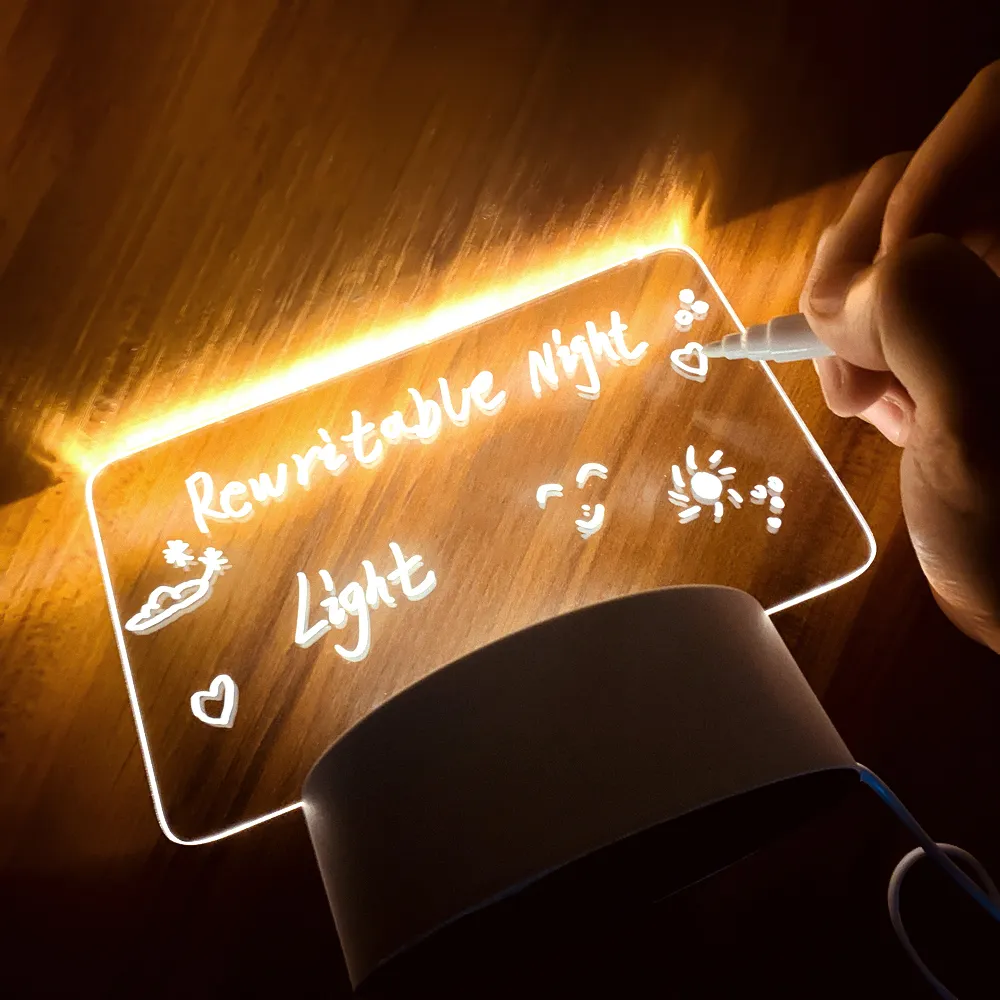 Rewritable Night
Light